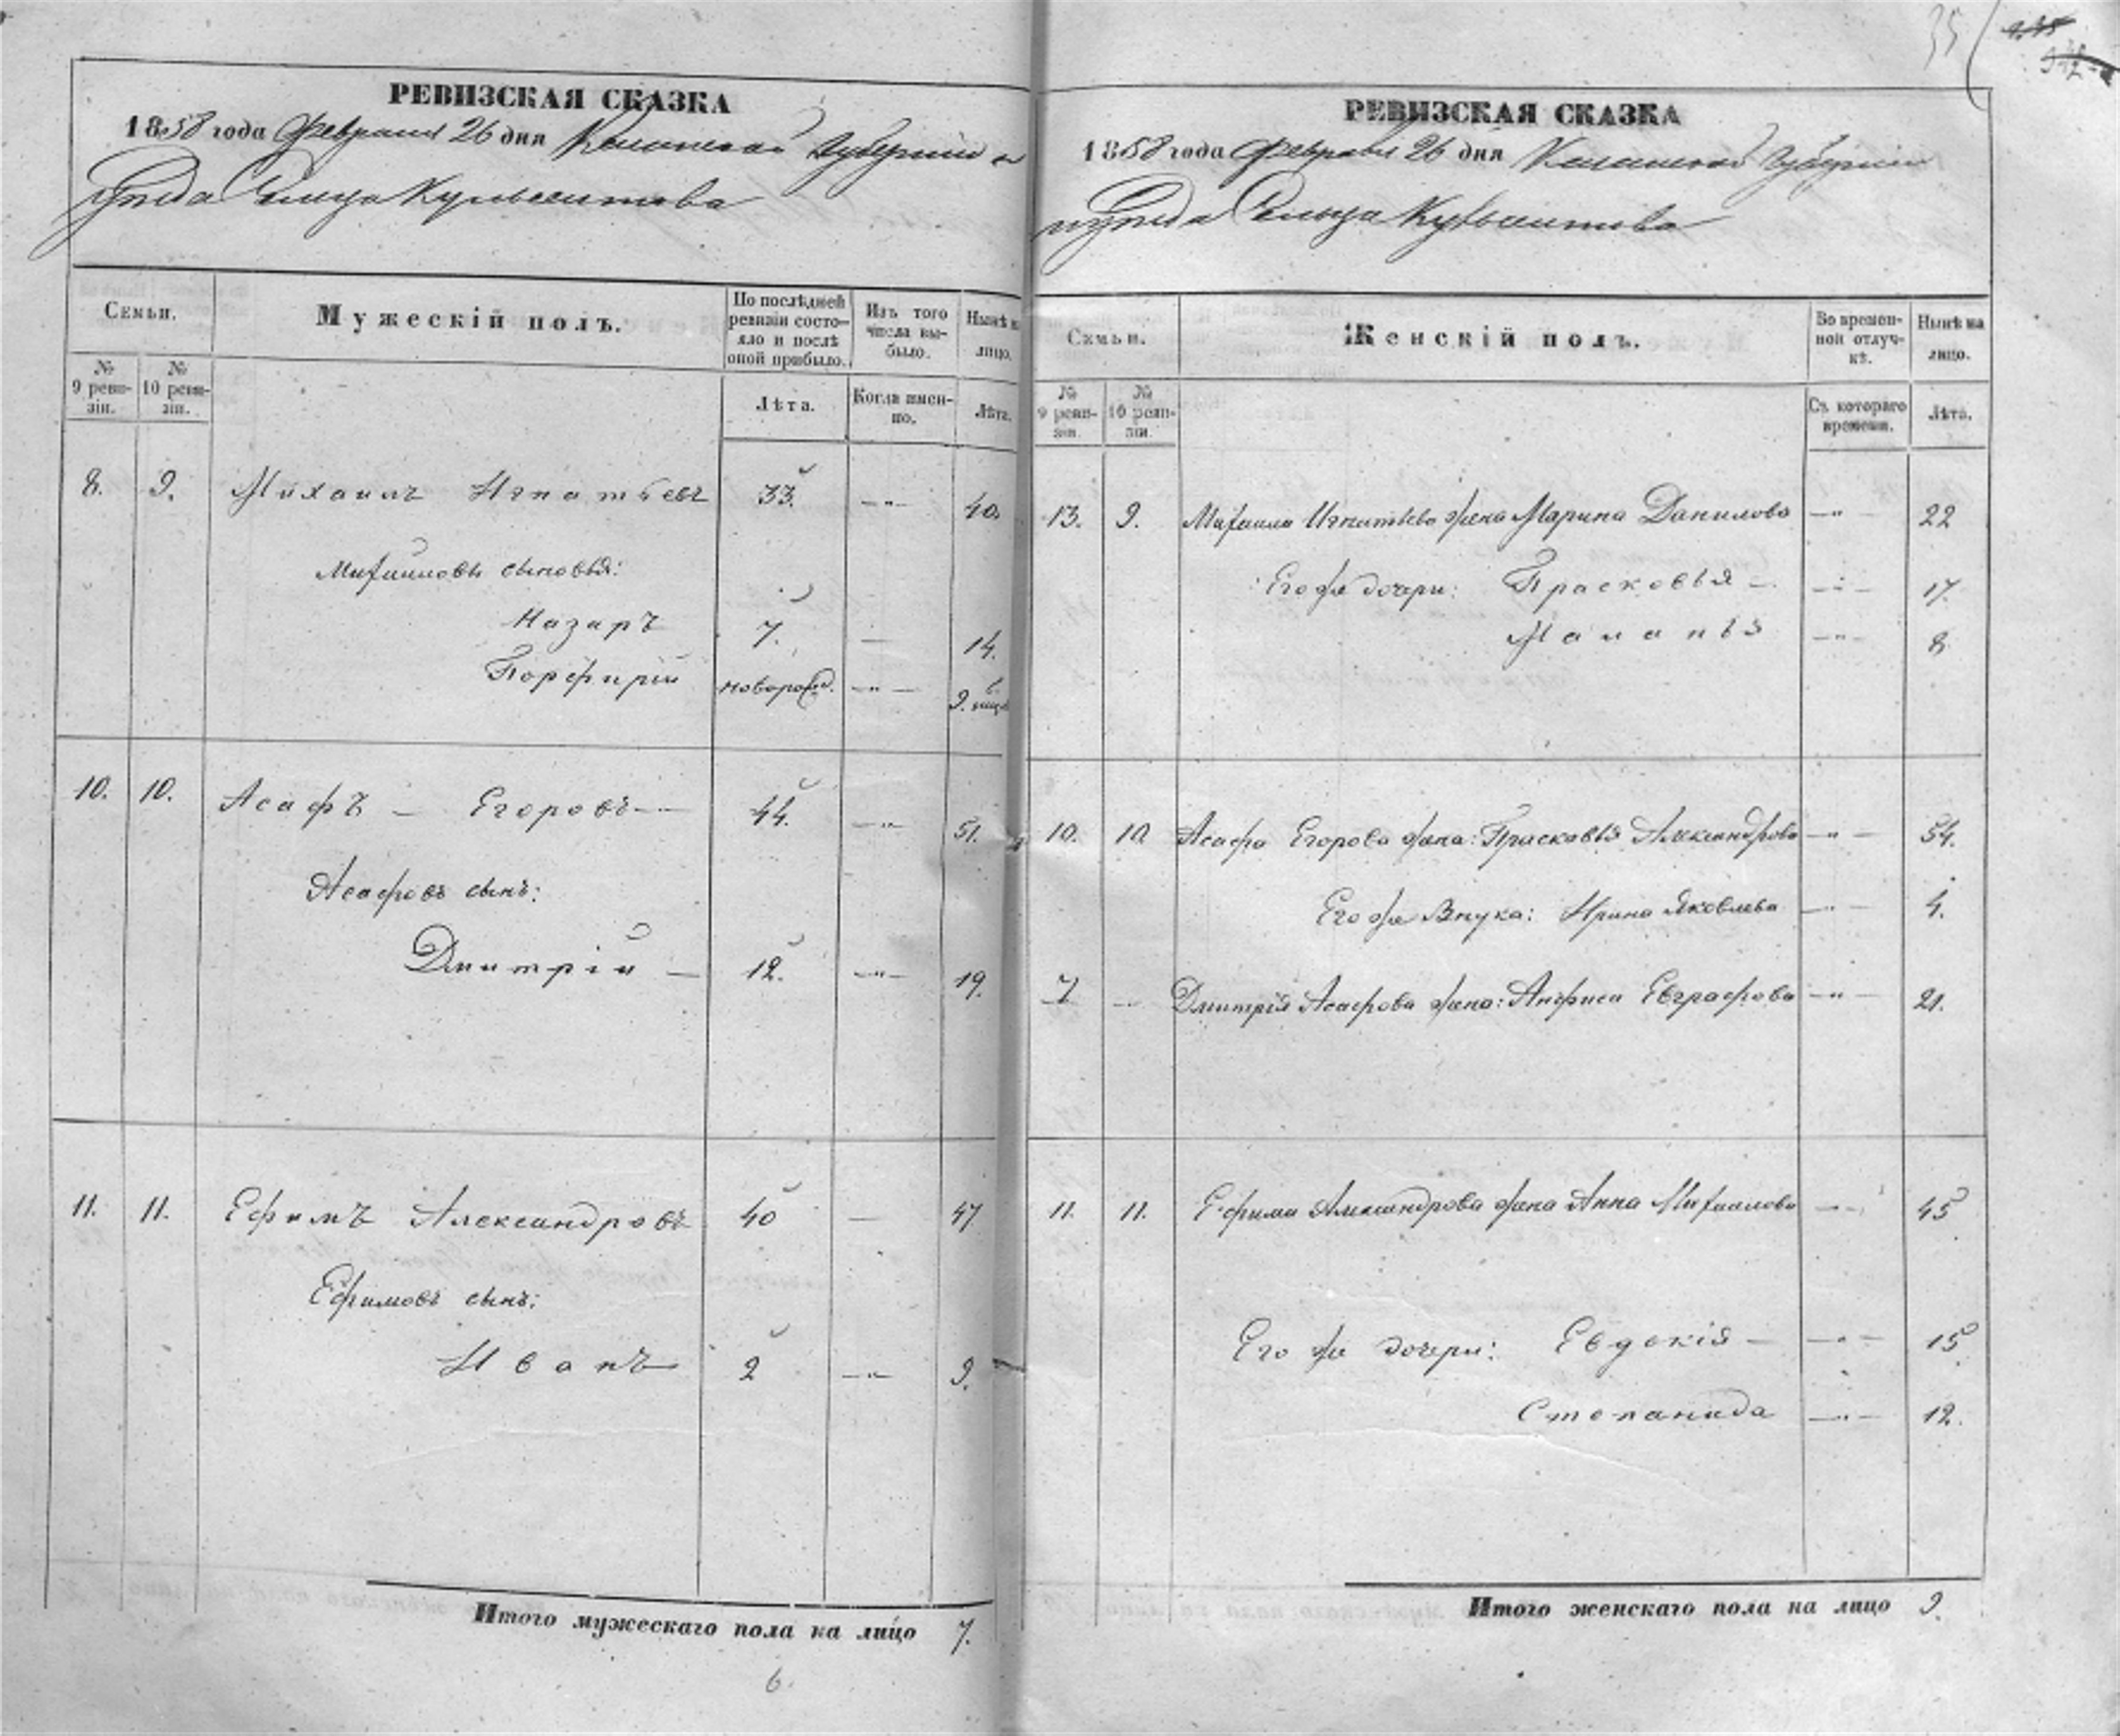 35
РЕВИЗСКАЯ СКАЗКА
1858 года Февраля 26 дня Казанской Губерніи и
уѣзда Сельца
Семьи.
Мужескій полъ.
По послѣдней ревизіи состояло и послѣ оной прибыло.
Изъ того числа выбыло.
Нынѣ на лицо.
№ 9 ревизіи.
№ 10 ревизіи.
Лѣта.
Когда именно.
Лѣта.
8. 9. Михаилъ Игнатьевъ 33. —"— 40.
Михаиловы сыновья:
Назаръ 7. — 14.
Порфирій новорожд. —"— 9.
10. 10. Асафъ — Егоровъ — 44. —"— 51.
Асафовъ сынъ:
Дмитрій — 12. —"— 19.
11. 11. Ефимъ Александровъ 40 — 47
Ефимовъ сынъ:
Иванъ 2 —"— 9.
Итого мужескаго пола на лицо 7.
6.
РЕВИЗСКАЯ СКАЗКА
1858 года Февраля 26 дня Казанской Губерніи
и уѣзда Сельца
Семьи.
Женскій полъ.
Во временной отлучкѣ.
Нынѣ на лицо.
№ 9 ревизіи.
№ 10 ревизіи.
Съ котораго времени.
Лѣта.
13. 9. Михаила Игнатьева жена Марина Данилова —"— 22
Его же дочери: Прасковья — —"— 17.
Маланья —"— 8
10. 10 Асафа Егорова жена: Прасковья Александрова —"— 54.
Его же Внука: Ирина Яковлева —"— 4.
7 — Дмитрія Асафова жена: Анфиса Евграфова —"— 21.
11. 11. Ефима Александрова жена Анна Михаилова —"— 45
Его же дочери: Евдокія — —"— 15
Степанида —"— 12.
Итого женскаго пола на лицо 9.